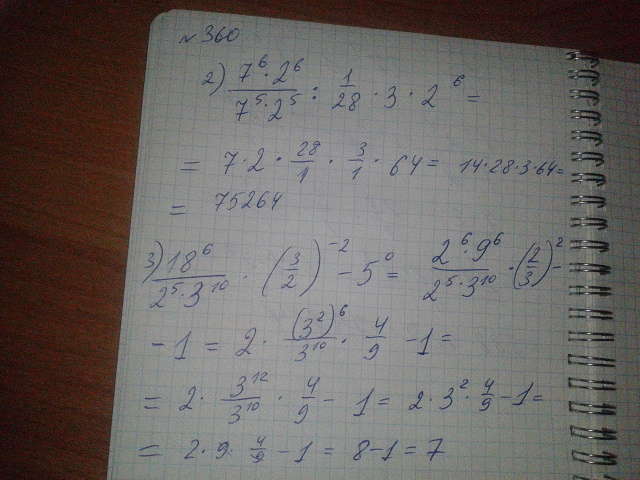 №360
2) 7⁶·2⁶ / 7⁵·2⁵ : 1/28 · 3 · 2⁶ =
= 7·2 · 28/1 · 3/1 · 64 = 14·28·3·64=
= 75264
3) 18⁶ / 2⁵·3¹⁰ · (3/2)⁻² - 5⁰ = 2⁶·9⁶ / 2⁵·3¹⁰ · (2/3)² -
- 1 = 2 · (3²)⁶ / 3¹⁰ · 4/9 - 1 =
= 2 · 3¹² / 3¹⁰ · 4/9 - 1 = 2·3²·4/9 - 1 =
= 2·9·4/9 - 1 = 8-1 = 7